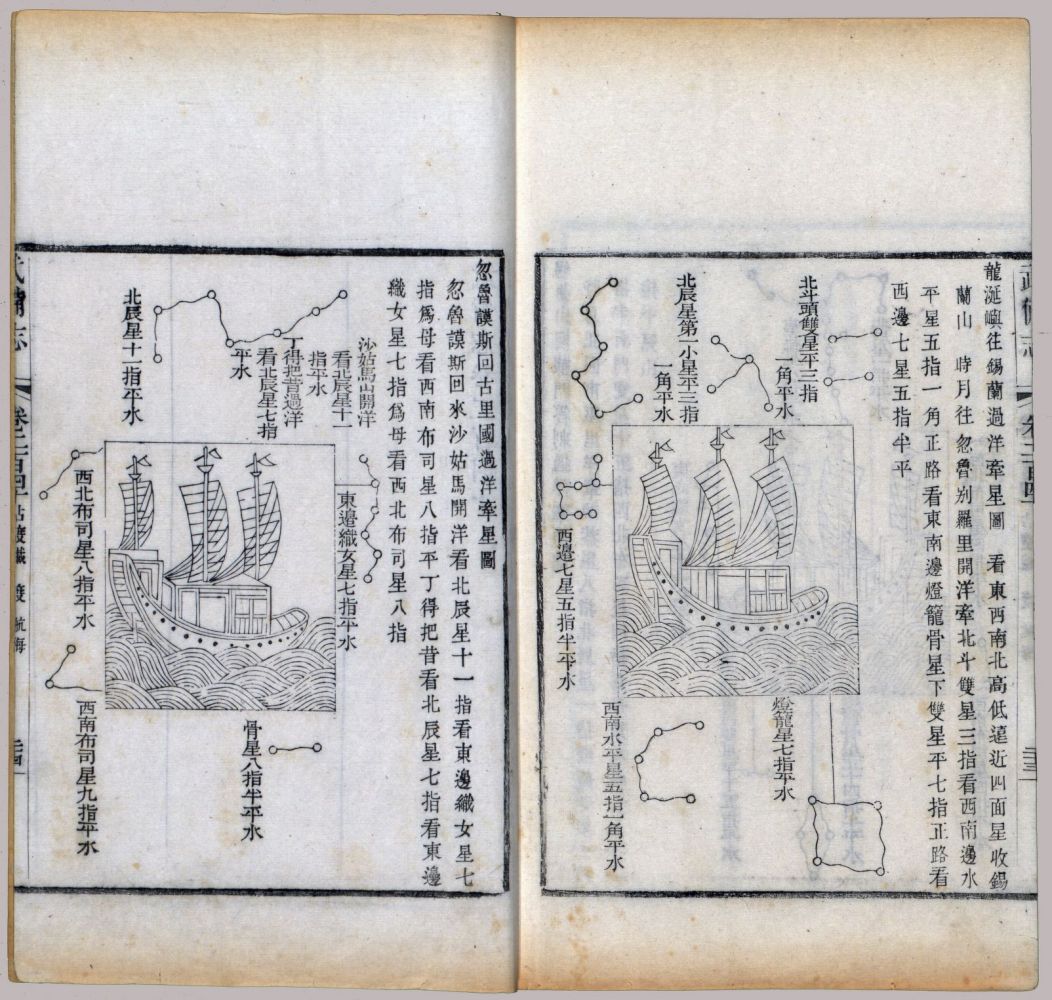 龍涎嶼往錫蘭過洋牽星圖 看東西南北高低遠近四面星收錫
蘭山 時月往忽魯別羅里開洋牽北斗雙星三指看西南邊水
平星五指一角正路看東南邊燈籠骨星下雙星平七指正路看
西邊七星五指半平
北斗頭雙星平三指
一角平水
北辰星第一小星平三指
一角平水
西邊七星五指半平水
燈籠星七指平水
西南水平星五指一角平水
忽魯謨斯回古里國過洋牽星圖
忽魯謨斯回來沙姑馬開洋看北辰星十一指看東邊織女星七
指爲母看西南布司星八指平丁得把昔看北辰星七指看東邊
織女星七指爲母看西北布司星八指
沙姑馬山開洋
看北辰星十一
指平水
丁得把昔過洋
看北辰星七指
平水
北辰星十指平水
東邊織女星七指平水
西北布司星八指平水
骨星八指半平水
西南布司星九指平水
武備志
卷二百四十
航海